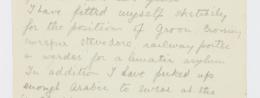 I have fitted myself
for the position of groom
stevedore, railway porter
a warder for a lunatic asylum
In addition I have picked up
enough Arabic to swear at the